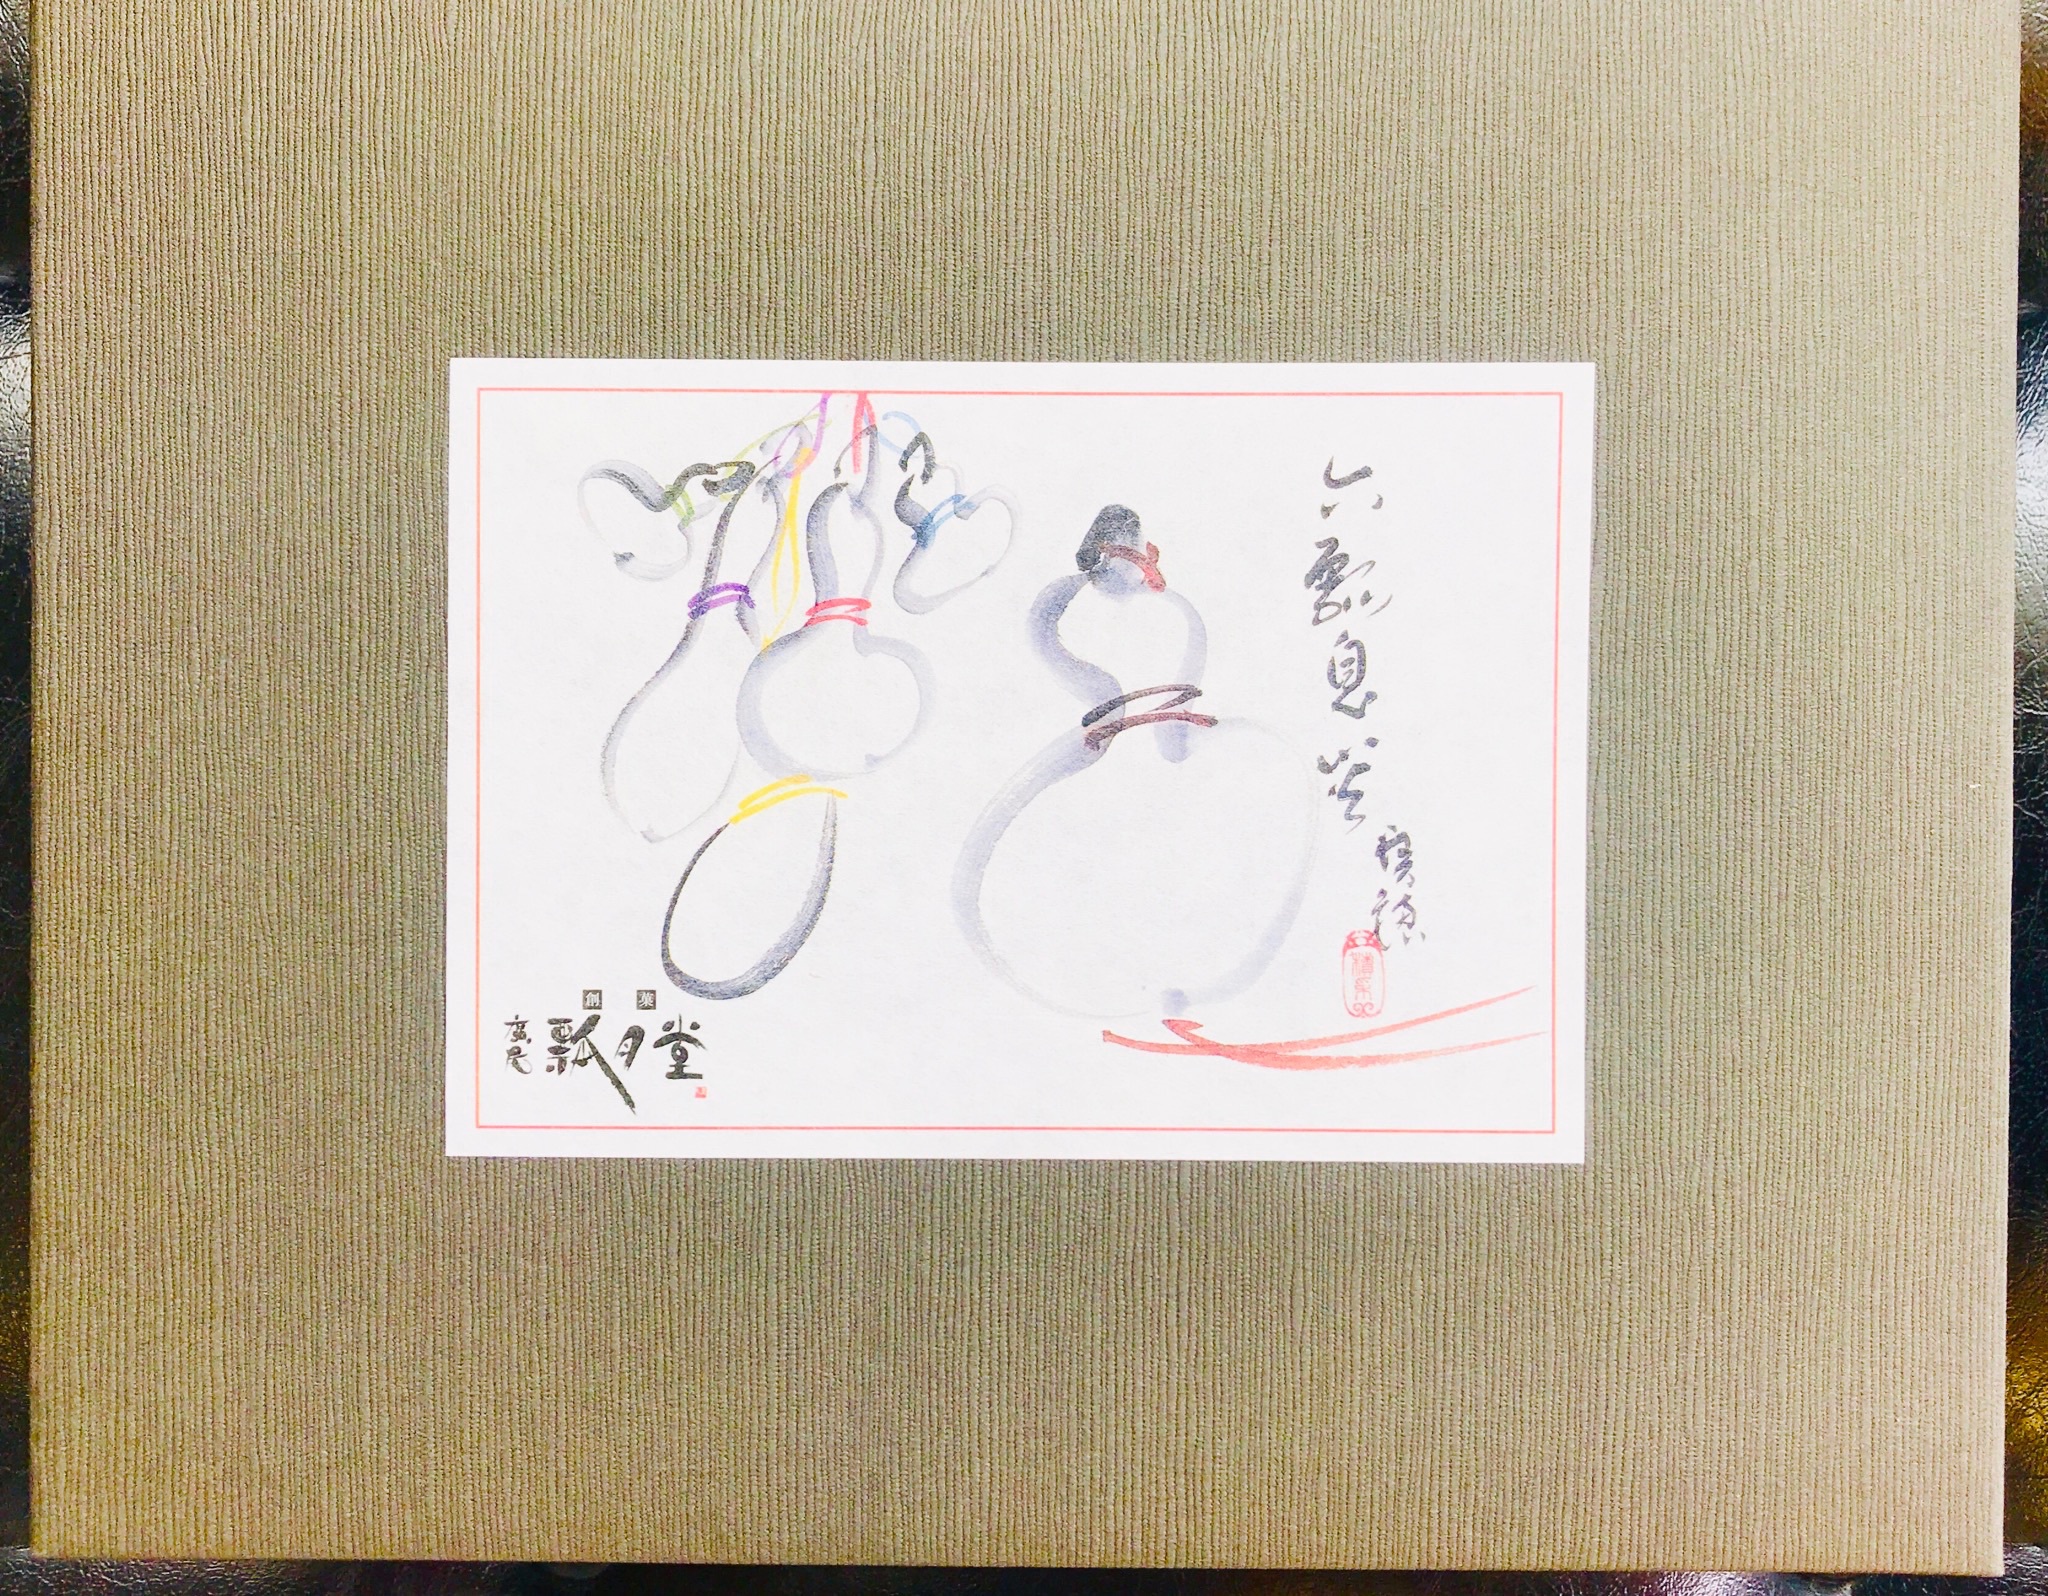 六瓢息災
創菓
廣尾
瓢月堂